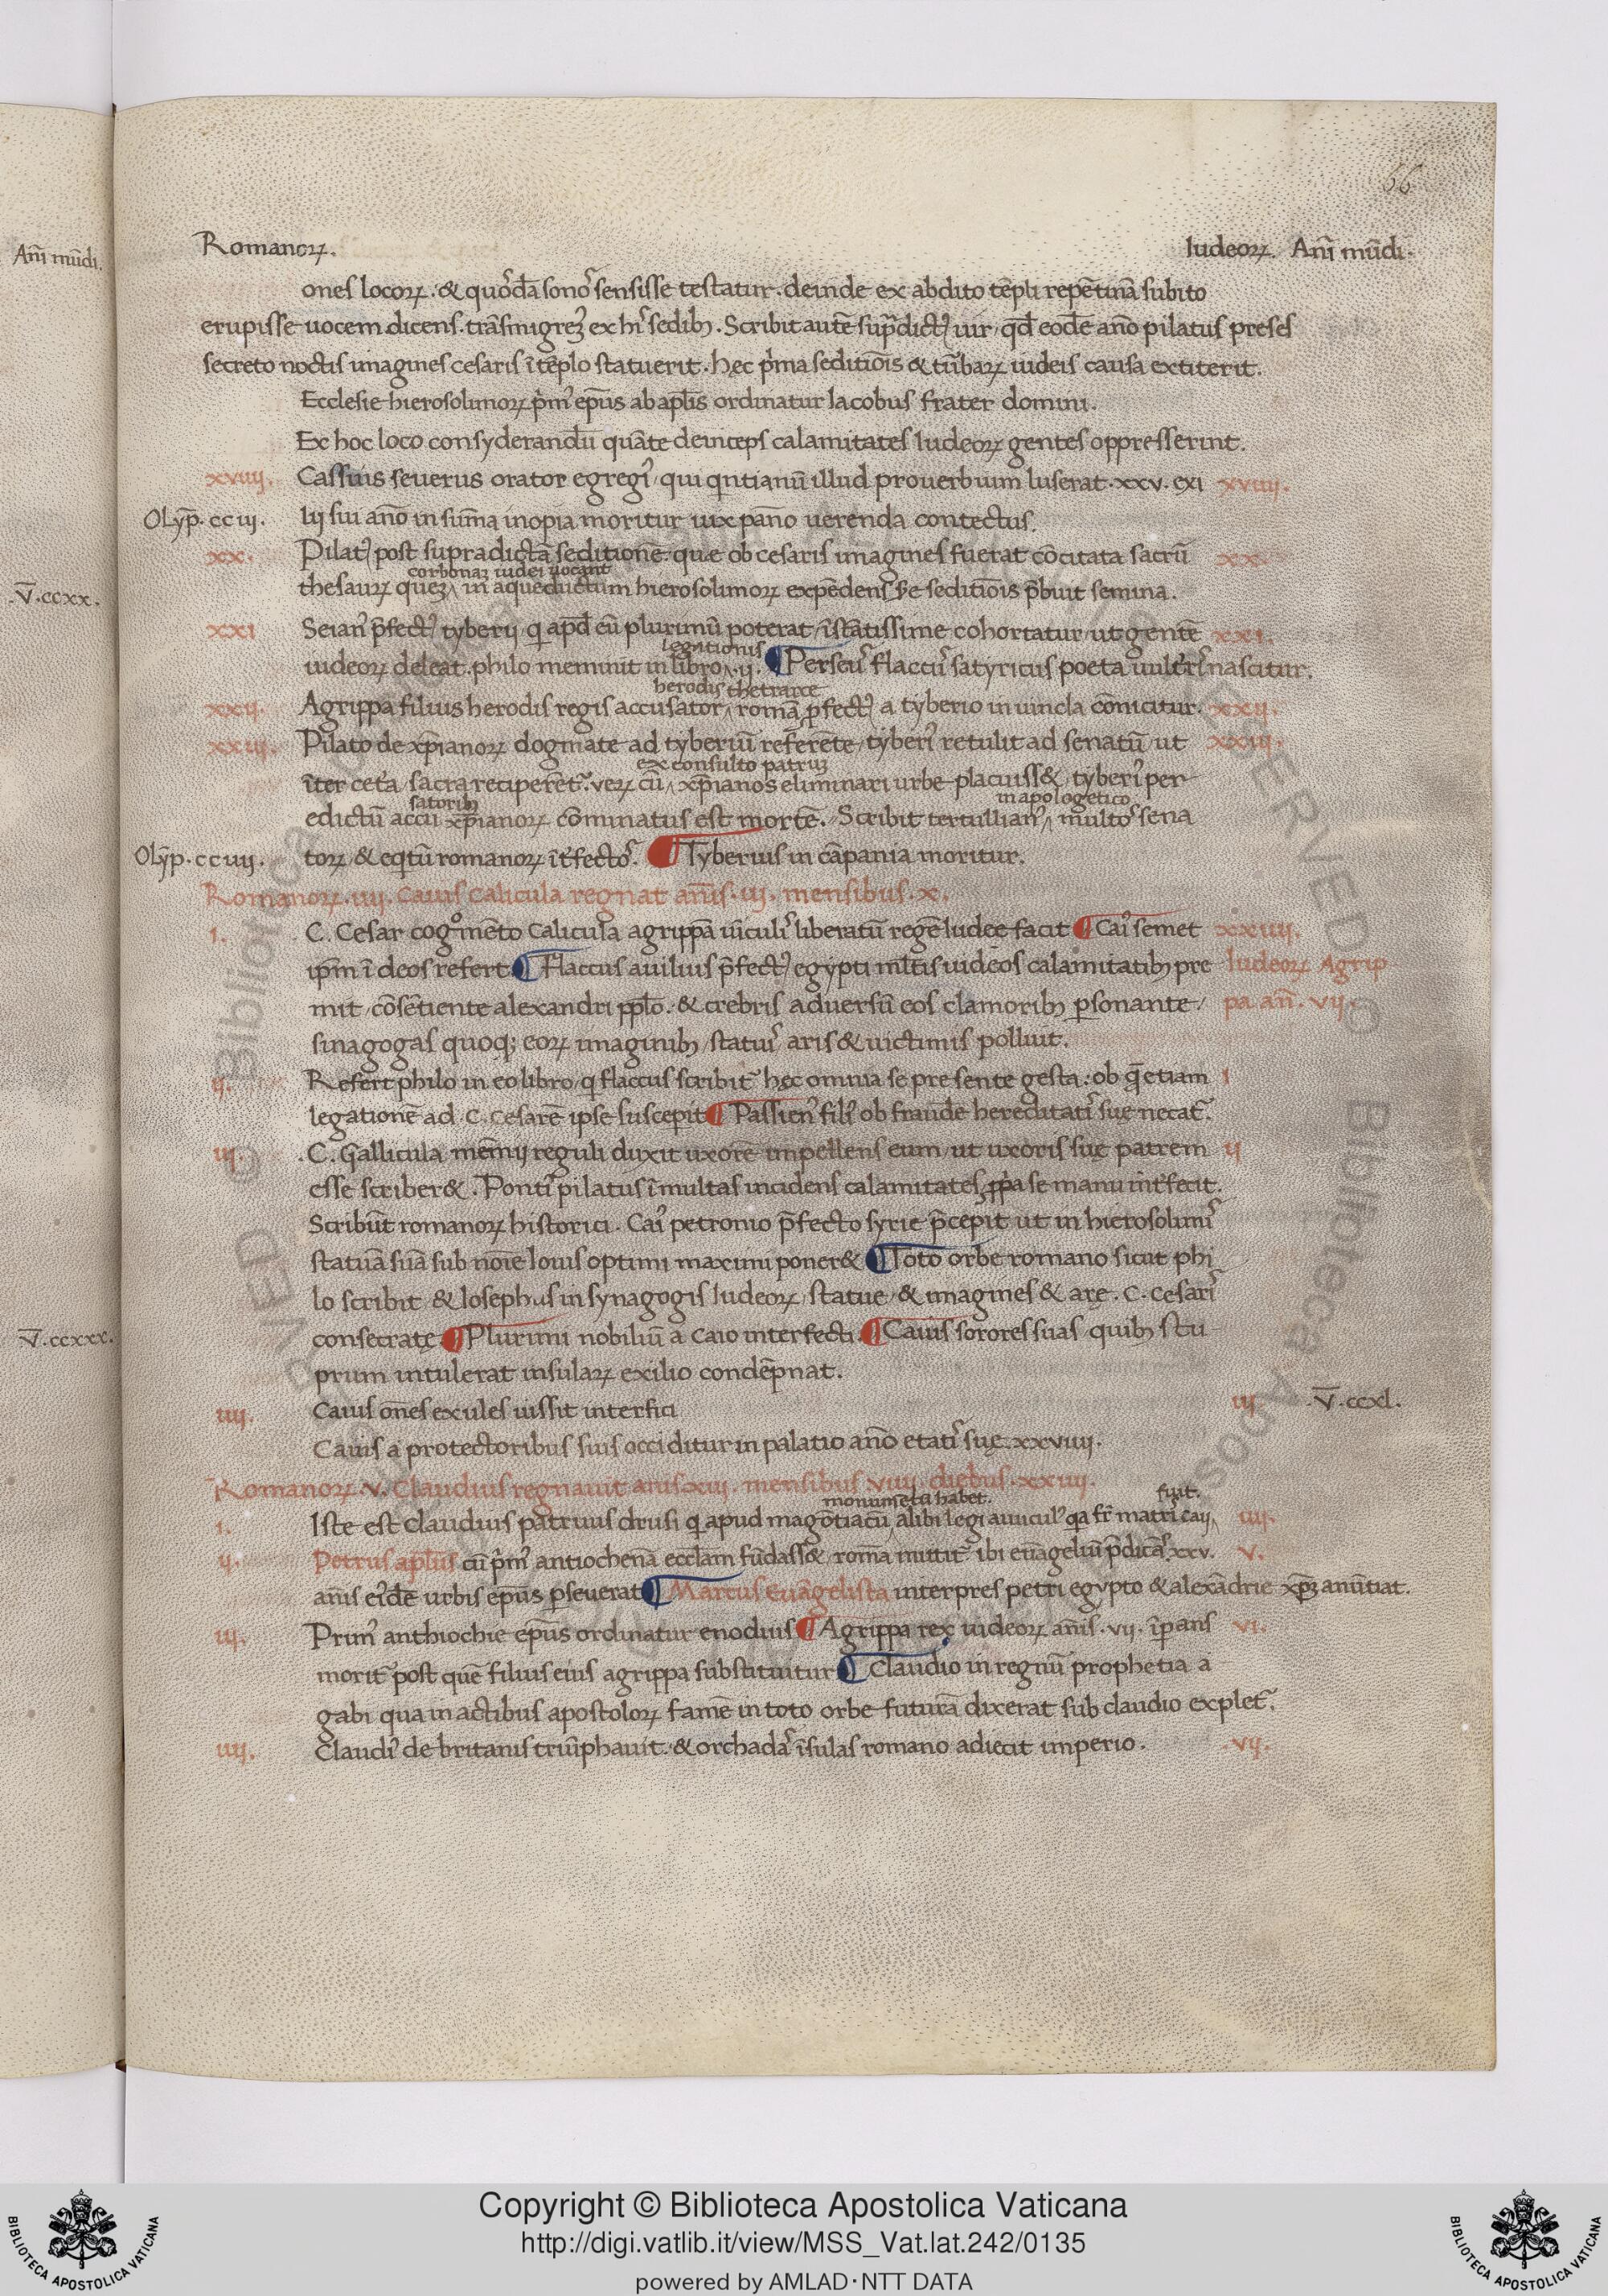 66
Añi mũdi.
Romanoꝝ.
Iudeoꝝ. Añi mũdi.
ones locoꝝ. & quõdã sonoˢ sensisse testatur. deinde ex abdito tẽpli repẽtinã subito
erupisse uocem dicens. trãsmigremꝰ ex hiˢ sedibꝫ. Scribit autẽ sup̃dictꝰ uir, qđ eodẽ año pilatus preses
secreto noctis imagines cesaris ĩ tẽplo statuerit. hęc p̃ma seditiõis & tũbaꝝ iudeis causa extiterit.
Ecclesie hierosolimoꝝ p̃mꝰ ep̃us ab apl̃is ordinatur Iacobus frater domini.
Ex hoc loco consyderandũ quãte deinceps calamitates Iudeoꝝ gentes oppresserint.
xviiij. Cassius seuerus orator egregiꝰ, qui qⁱntianũ illud prouerbium luserat. xxv. exi xviiij.
Olỹp. cciij. lij sui año in sum̃a inopia moritur uix pãno uerenda contectus.
xx. Pilatꝰ post supradictã seditionẽ quæ ob cesaris imagines fuerat cõcitata sacrũ xx.
corbonaꝫ iudei uocant
.V̅.ccxx. thesauꝝ queꝫ, in aqueductum hierosolimoꝝ expẽdens, seditiõis p̃buit semina.
xxi Seianꝰ p̃fectꝰ tyberij, qⁱ apđ eũ plurimũ poterat, ĩstãtissime cohortatur, ut gentẽ xxi.
legationis
iudeoꝝ deleat. philo meminit in libro. ij. ¶ Perseuˢ flaccuˢ satyricus poeta uult̃riˢ nascitur.
herodis thetrarce
xxij. Agrippa filius herodis regis accusator, romã p̃fectꝰ a tyberio in uincla cõnicitur. xxij.
xxiij. Pilato de xp̃ianoꝝ dogmate ad tyberiũ referẽte, tyberiꝰ retulit ad senatũ, ut xxiij.
ex consulto patruꝫ
ĩter cet̃a, sacra reciperẽt᷑. veꝝ cũ, xp̃ianos eliminari urbe placuiss&, tyberiꝰ per
satoribꝫ in apologetico
edictũ accu xp̃ianoꝝ cõminatus est mortẽ. Scribit tertullianꝰ, multoˢ sena
Olỹp. cciiij. toꝝ, & eqⁱtũ romanoꝝ ĩt̃fectoˢ. ¶ Tyberius in cãpania moritur.
Romanoꝝ. iiij. Caius Calicula regnat añis. iij. mensibus. x.
i. C. Cesar cogº̃mẽto Calicula agrippã uĩculiˢ liberatũ regẽ Iudee facit ¶ Caiꝰ semet xxiiij.
ip̃m ĩ deos refert ¶ Flaccus auilius p̃fectꝰ egypti ml̃tis iudeos calamitatibꝫ pre Iudeoꝝ Agrip
mit, cõsẽtiente alexandri pp̃lo. & crebris aduersũ eos clamoribꝫ ꝑsonante, pa añ. vij.
sinagogas quoqꝫ eoꝝ imaginibꝫ, statuiˢ aris & uictimis polluit.
ij. Refert philo in eo libro, qⁱ flaccus scribit᷑ hęc omnia se presente gesta. ob q̃ etiam i
legationẽ ad. C. Cesarẽ ipse suscepit ¶ Passienꝰ filiˢ ob fraudẽ hereditatiˢ suę necat᷑.
iij. C. Gallicula mẽmij reguli duxit uxorẽ impellens eum, ut uxoris suę patrem ij
esse scriber&. Pontiꝰ pilatus ĩ multas incidens calamitates, p̃pa se manu ĩnt̃fecit.
Scribũt romanoꝝ historici. Caiꝰ petronio p̃fecto syrie p̃cepit ut in hierosolimiˢ
statuã suã sub noĩe Iouis optimi maximi poner& ¶ Toto orbe romano sicut phi
lo scribit & Iosephus in synagogis Iudeoꝝ, statue, & imagines & arę. C. Cesariˢ
V̅.ccxxx. consecratę. ¶ Plurimi nobiliũ a Caio interfecti. ¶ Caius sorores suas quibꝫ stu
prum intulerat insulaꝝ exilio condẽpnat.
iiij. Caius oñes exules iussit interfici iij. .V̅.ccxl.
Caius a protectoribus suis occiditur in palatio año etatiˢ suę. xxviiij.
Romanoꝝ. v. Claudius regnauit anis xiij. mensibus viiij diebus. xxiiij.
monumẽta habet. fuit.
i. Iste est Claudius patruus drusi qⁱ apud magõtiacũ, alibi legi auunculꝰ qⁱa fr̃ matriˢ caij, iiij.
ij. Petrus apl̃us cũ p̃mꝰ antiochenã eccl̃am fũdass&, romã mittit᷑ ibi euãgeliũ p̃dicãˢ, xxv. v.
añis eiꝰdẽ urbis ep̃us ꝑseuerat ¶ Marcus Euãgelista interpres petri egypto & alexãdrie xp̃ꝫ anũtiat.
iij. Primꝰ anthiochie ep̃us ordinatur enodius ¶ Agrippa rex iudeoꝝ añis. vij. ĩpans vi.
morit᷑ post quẽ filius eius agrippa substituitur ¶ Claudio in regnũ prophetia a
gabi qua in actibus apostoloꝝ famẽ in toto orbe futurã dixerat sub claudio explet᷑.
iiij. Claudiꝰ de britanis triũphauit. & orchadaˢ ĩsulas romano adiecit imperio. .vij.
Copyright © Biblioteca Apostolica Vaticana
http://digi.vatlib.it/view/MSS_Vat.lat.242/0135
powered by AMLAD·NTT DATA
BIBLIOTECA APOSTOLICA VATICANA
BIBLIOTECA APOSTOLICA VATICANA